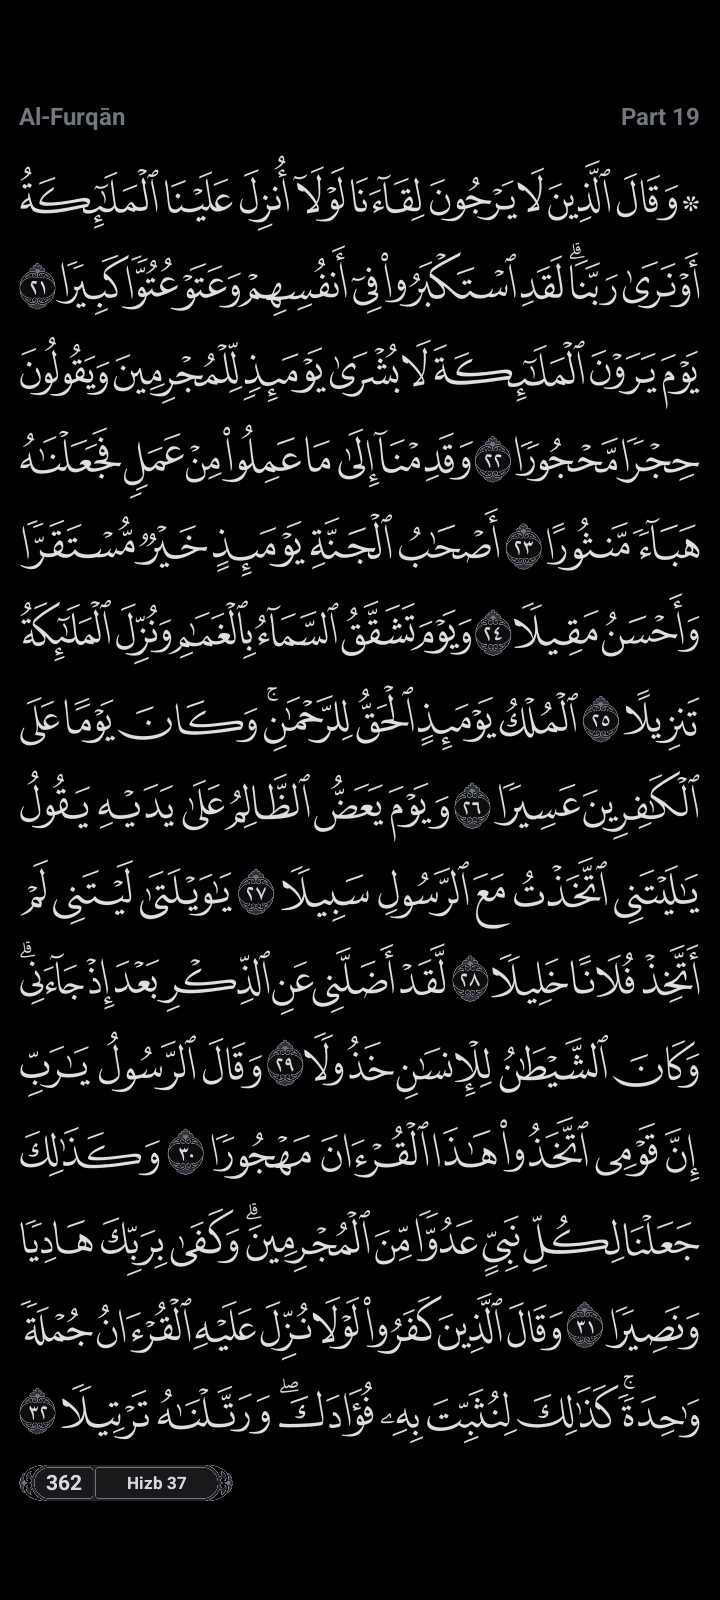 Al-Furqān Part 19
۞ وَقَالَ ٱلَّذِينَ لَا يَرْجُونَ لِقَآءَنَا لَوْلَآ أُنزِلَ عَلَيْنَا ٱلْمَلَٰٓئِكَةُ
أَوْ نَرَىٰ رَبَّنَاۗ لَقَدِ ٱسْتَكْبَرُوا۟ فِىٓ أَنفُسِهِمْ وَعَتَوْ عُتُوًّا كَبِيرًا ٢١
يَوْمَ يَرَوْنَ ٱلْمَلَٰٓئِكَةَ لَا بُشْرَىٰ يَوْمَئِذٍ لِّلْمُجْرِمِينَ وَيَقُولُونَ
حِجْرًا مَّحْجُورًا ٢٢ وَقَدِمْنَآ إِلَىٰ مَا عَمِلُوا۟ مِنْ عَمَلٍ فَجَعَلْنَٰهُ
هَبَآءً مَّنثُورًا ٢٣ أَصْحَٰبُ ٱلْجَنَّةِ يَوْمَئِذٍ خَيْرٌ مُّسْتَقَرًّا
وَأَحْسَنُ مَقِيلًا ٢٤ وَيَوْمَ تَشَقَّقُ ٱلسَّمَآءُ بِٱلْغَمَٰمِ وَنُزِّلَ ٱلْمَلَٰٓئِكَةُ
تَنزِيلًا ٢٥ ٱلْمُلْكُ يَوْمَئِذٍ ٱلْحَقُّ لِلرَّحْمَٰنِۚ وَكَانَ يَوْمًا عَلَى
ٱلْكَٰفِرِينَ عَسِيرًا ٢٦ وَيَوْمَ يَعَضُّ ٱلظَّالِمُ عَلَىٰ يَدَيْهِ يَقُولُ
يَٰلَيْتَنِى ٱتَّخَذْتُ مَعَ ٱلرَّسُولِ سَبِيلًا ٢٧ يَٰوَيْلَتَىٰ لَيْتَنِى لَمْ
أَتَّخِذْ فُلَانًا خَلِيلًا ٢٨ لَّقَدْ أَضَلَّنِى عَنِ ٱلذِّكْرِ بَعْدَ إِذْ جَآءَنِىۗ
وَكَانَ ٱلشَّيْطَٰنُ لِلْإِنسَٰنِ خَذُولًا ٢٩ وَقَالَ ٱلرَّسُولُ يَٰرَبِّ
إِنَّ قَوْمِى ٱتَّخَذُوا۟ هَٰذَا ٱلْقُرْءَانَ مَهْجُورًا ٣٠ وَكَذَٰلِكَ
جَعَلْنَا لِكُلِّ نَبِىٍّ عَدُوًّا مِّنَ ٱلْمُجْرِمِينَۗ وَكَفَىٰ بِرَبِّكَ هَادِيًا
وَنَصِيرًا ٣١ وَقَالَ ٱلَّذِينَ كَفَرُوا۟ لَوْلَا نُزِّلَ عَلَيْهِ ٱلْقُرْءَانُ جُمْلَةً
وَٰحِدَةًۚ كَذَٰلِكَ لِنُثَبِّتَ بِهِۦ فُؤَادَكَۖ وَرَتَّلْنَٰهُ تَرْتِيلًا ٣٢
362 Hizb 37